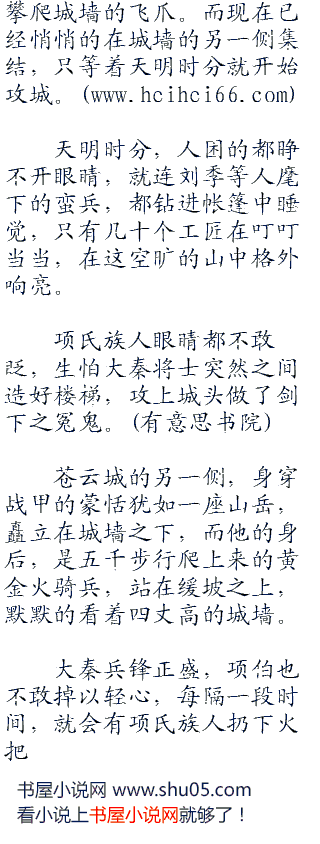 攀爬城墙的飞爪。而现在已
经悄悄的在城墙的另一侧集
结，只等着天明时分就开始
攻城。(www.hcihci66.com)
天明时分，人困的都睁
不开眼睛，就连刘季等人麾
下的蛮兵，都钻进帐篷中睡
觉，只有几十个工匠在叮叮
当当，在这空旷的山中格外
响亮。
项氏族人眼睛都不敢
眨，生怕大秦将士突然之间
造好楼梯，攻上城头做了剑
下之冤鬼。(有意思书院)
苍云城的另一侧，身穿
战甲的蒙恬犹如一座山岳，
矗立在城墙之下，而他的身
后，是五千步行爬上来的黄
金火骑兵，站在缓坡之上，
默默的看着四丈高的城墙。
大秦兵锋正盛，项伯也
不敢掉以轻心，每隔一段时
间，就会有项氏族人扔下火
把
书屋小说网 www.shu05.com
看小说上书屋小说网就够了！